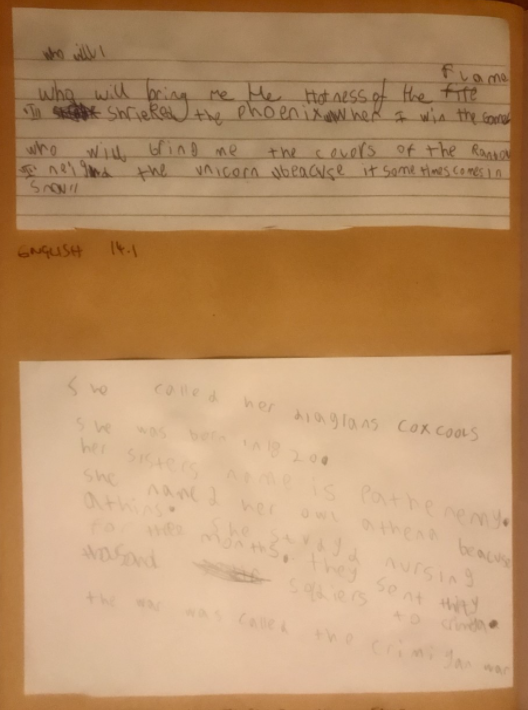 who will
Flame
who will bring me the Hotness of the fire
shrieked the phoenix when I win the Games
who will bring me the covers of the
the unicorn beacuse it some times comes in
Snow
ENGLISH 14.1
She called her diagrans coxcoors
She was born in 1820
her sisters name is pathenemy.
She named her owl athena beacuse
athins. She studyd nursing
for three months. they sent thirty
thousand soldiers to crimea.
the war was called the crimigan war